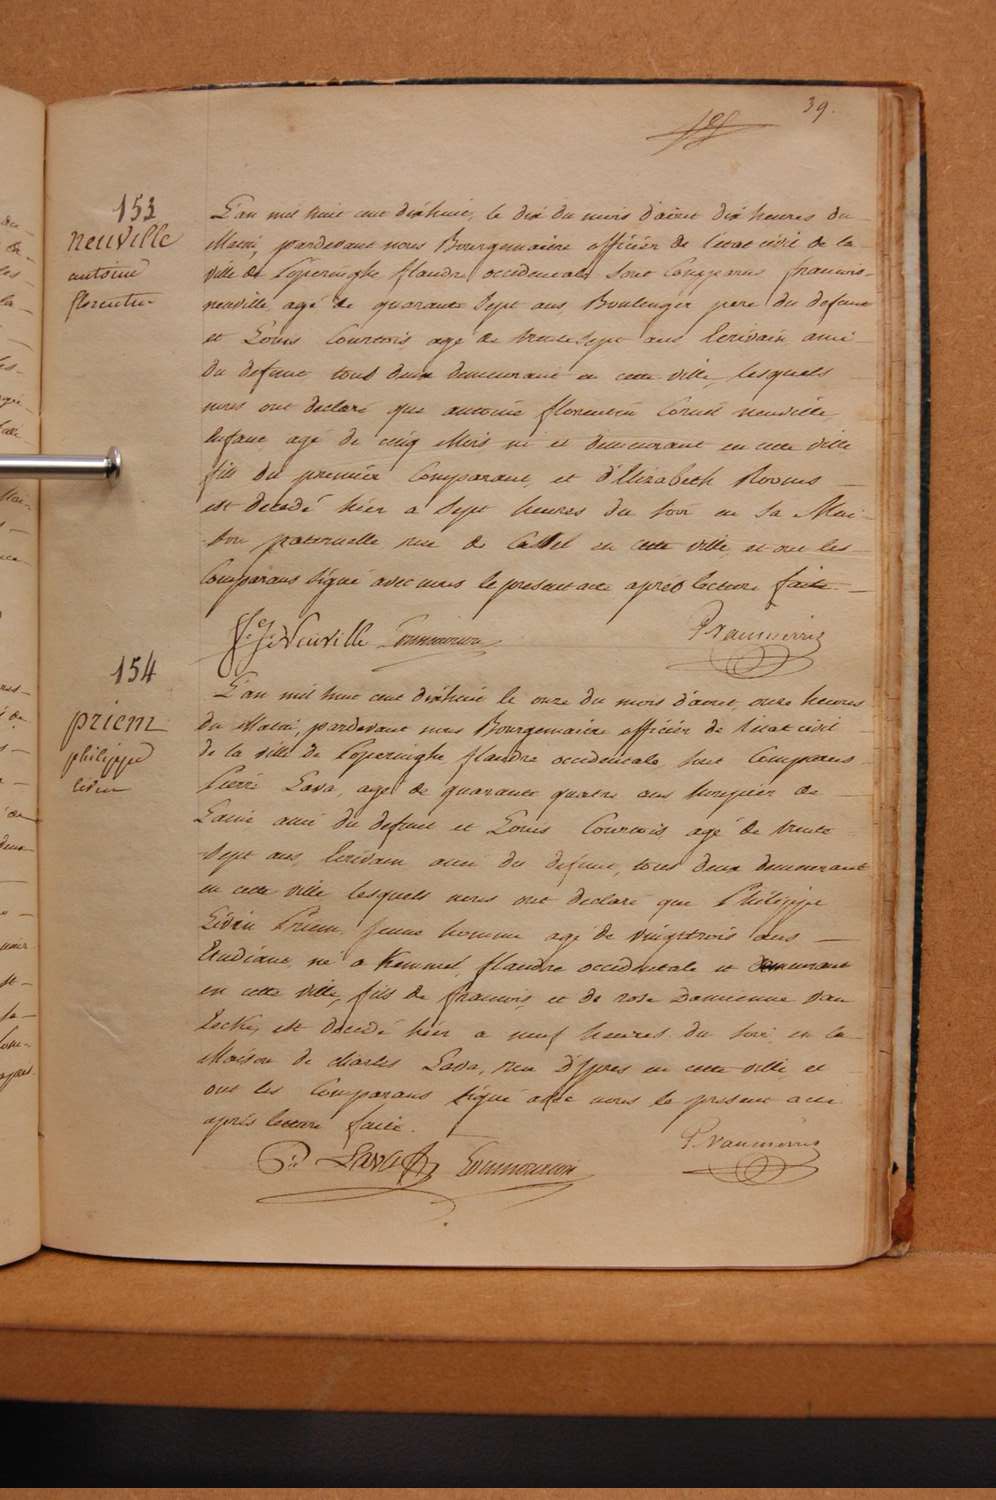 39.
153
neuville
antoine
florentin
L'an mil huit cent dixhuit, le dix du mois d'aout dix heures du
Matin, pardevant nous Bourgemaitre officier de l'état civil de la
ville de Poperinghe flandre occidentale sont Comparus francois
neuville, agé de quarante Sept ans, Boulenger pere du defunt
et Louis Courtois, agé de trente sept ans Ecrivain, ami
du defunt tous deux demeurant en cette ville, lesquels
nous ont declaré que antoine florentin Corneil neuville
Enfant, agé de cinq Mois né et demeurant en cette ville
fils du premier Comparant, et d'Elizabeth
est decedé hier a Sept heures du soir en sa Mai-
son paternelle, rue de Cassel en cette ville, et ont les
Comparans signé avec nous le present acte après lecture faite
Neuville
154
priem
philippe
livin
L'an mil huit cent dixhuit le onze du mois d'aout, onze heures
du Matin, pardevant nous Bourgemaitre officier de l'état civil
de la ville de Poperinghe flandre occidentale, sont Comparus
Pierre Lava, agé de quarante quatre ans de
Laine ami du defunt et Louis Courtois, agé de trente
Sept ans, Ecrivain ami du defunt, tous deux demeurant
en cette ville lesquels nous ont declaré que Philippe
Livin Priem, jeune homme agé de vingttrois ans
Etudiant, né a Kemmel, flandre occidentale et demeurant
en cette ville, fils de francois, et de rose Damienne van
Eecke, est decedé hier a neuf heures du soir en la
Maison de charles Lava, rue d'Ypres en cette ville, et
ont les Comparans signé avec nous le present acte
après lecture faite.
P. Lava